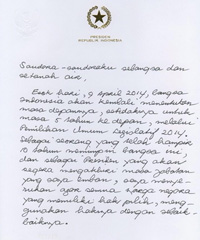 PRESIDEN
REPUBLIK INDONESIA
Saudara-saudaraku sebangsa dan
setanah air.
Esok hari, 9 April 2014, bangsa
Indonesia akan kembali menentukan
masa depannya, setidaknya untuk
masa 5 tahun ke depan, melalui
Pemilihan Umum Legislatif 2014.
Sebagai seorang yang telah hampir
10 tahun memimpin bangsa ini,
dan sebagai Presiden yang akan
segera mengakhiri masa jabatan
yang saya emban, saya menye-
rukan agar semua warga negara
yang memiliki hak pilih, meng-
gunakan haknya dengan sebaik-
baiknya.